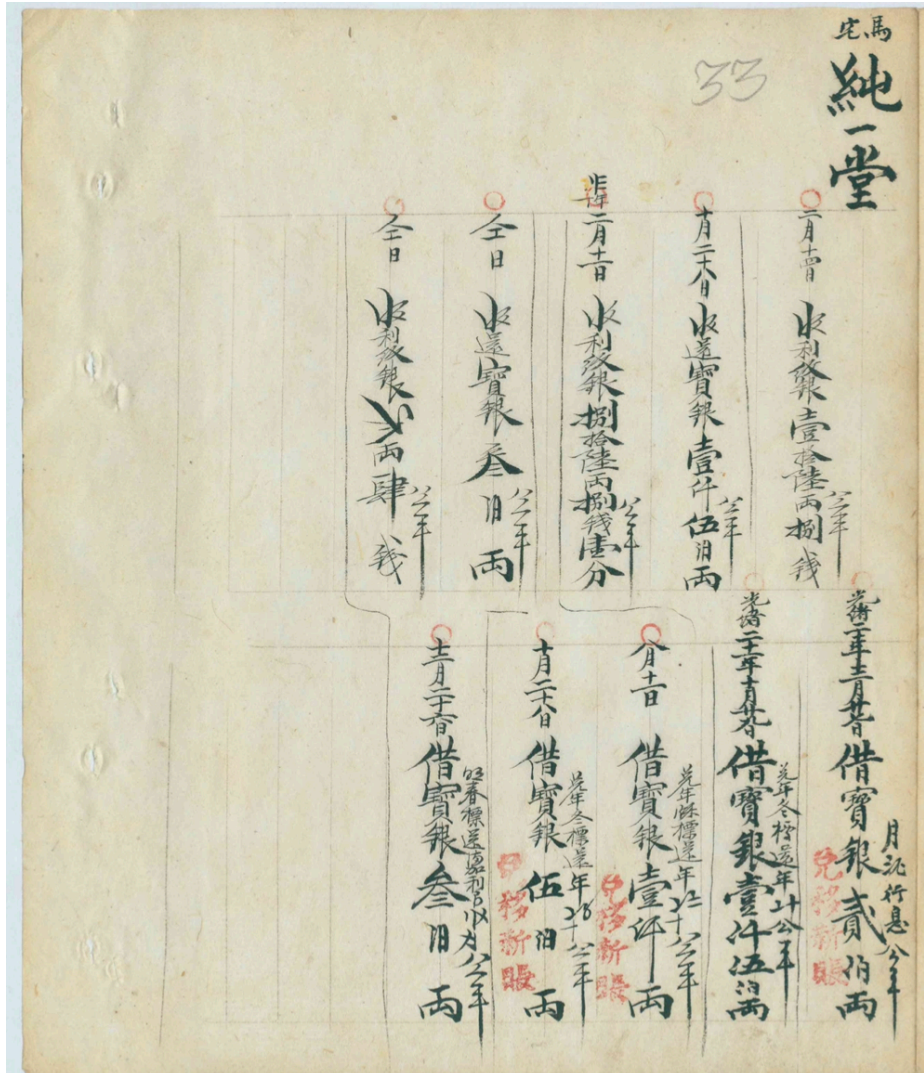 馬宅
純一堂
33
二月十四日 收利紋銀壹拾陸兩捌錢 公平
十月二十八日 收還寶銀壹仟伍佰兩 公平
二月十一日 收利紋銀捌拾陸兩捌錢壹分 公平
仝日 收還寶銀叁佰兩 公平
仝日 收利紋銀貳兩肆錢 公平
光緒二十年十二月廿日 借寶銀貳佰兩
月 行息 公平
兌移新賬
光緒二十一年十月廿八日 借寶銀壹仟伍佰兩
年冬標還年 公平
八月十一日 借寶銀壹仟兩
年秋標還年 公平
兌移新賬
十月二十八日 借寶銀伍佰兩
年冬標還年 公平
兌移新賬
十二月二十六日 借寶銀叁佰兩
春標還 利 公平